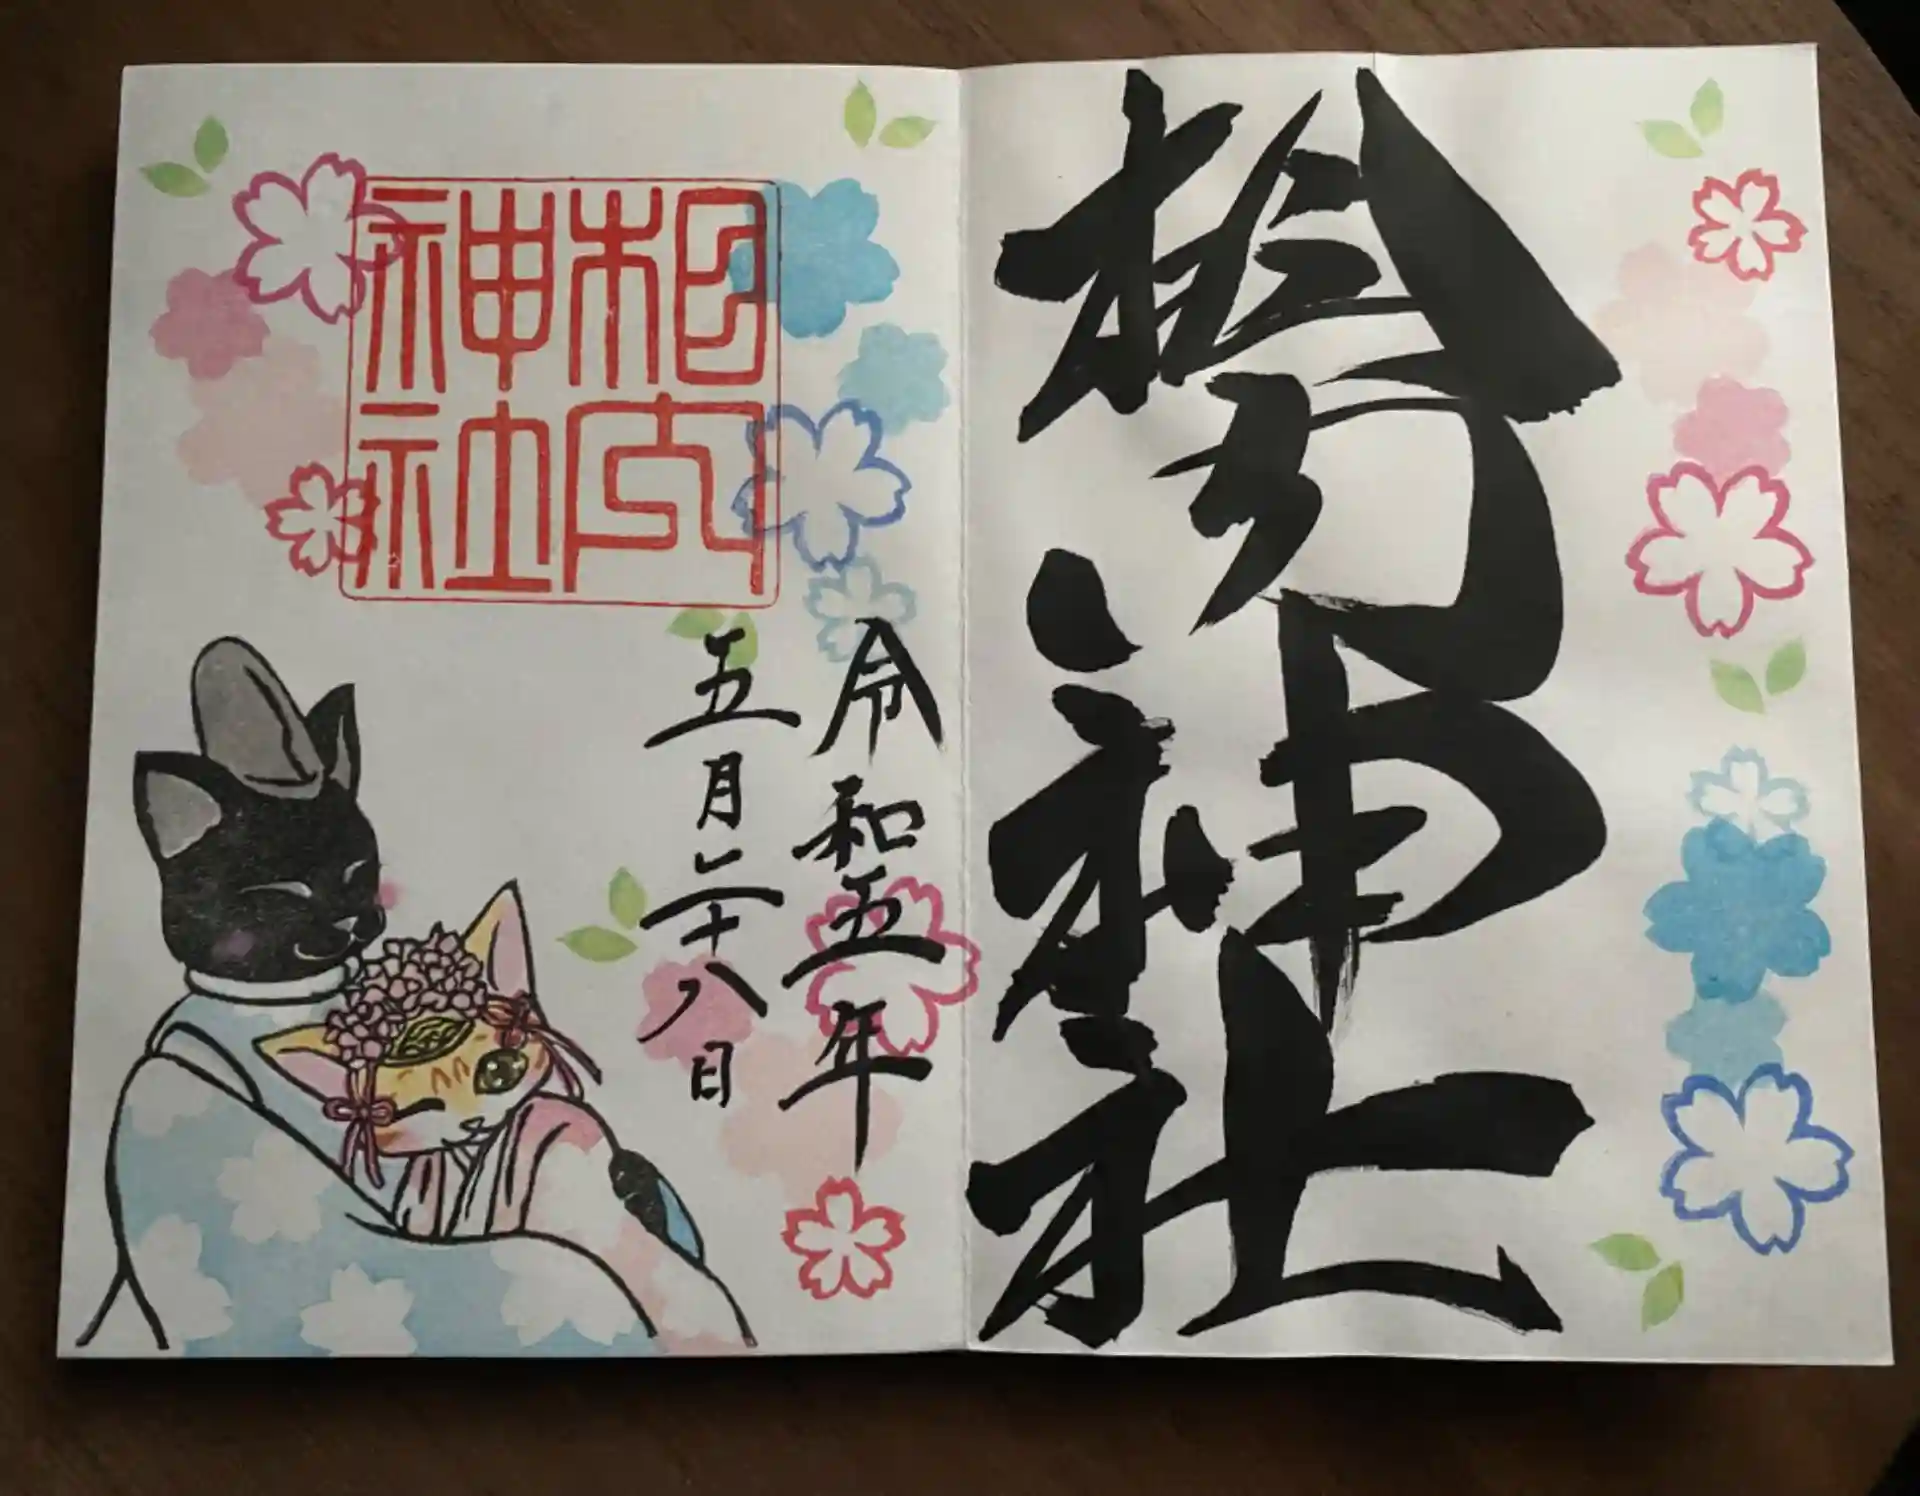 神社
神社
令和五年
五月二十八日